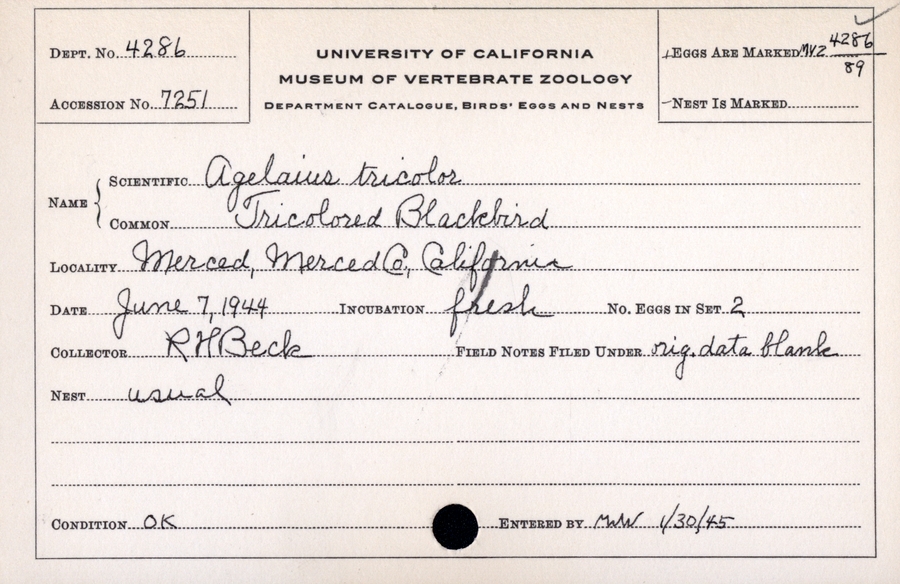 DEPT. No. 4286
ACCESSION No. 7251
UNIVERSITY OF CALIFORNIA
MUSEUM OF VERTEBRATE ZOOLOGY
DEPARTMENT CATALOGUE, BIRDS' EGGS AND NESTS
EGGS ARE MARKED MVZ 4286
89
NEST IS MARKED
NAME
SCIENTIFIC Agelaius tricolor
COMMON Tricolored Blackbird
LOCALITY Merced, Merced Co, California
DATE June 7, 1944 INCUBATION fresh No. EGGS IN SET 2
COLLECTOR R H Beck FIELD NOTES FILED UNDER orig. data blank
NEST usual
CONDITION OK ENTERED BY MWW 1/30/45